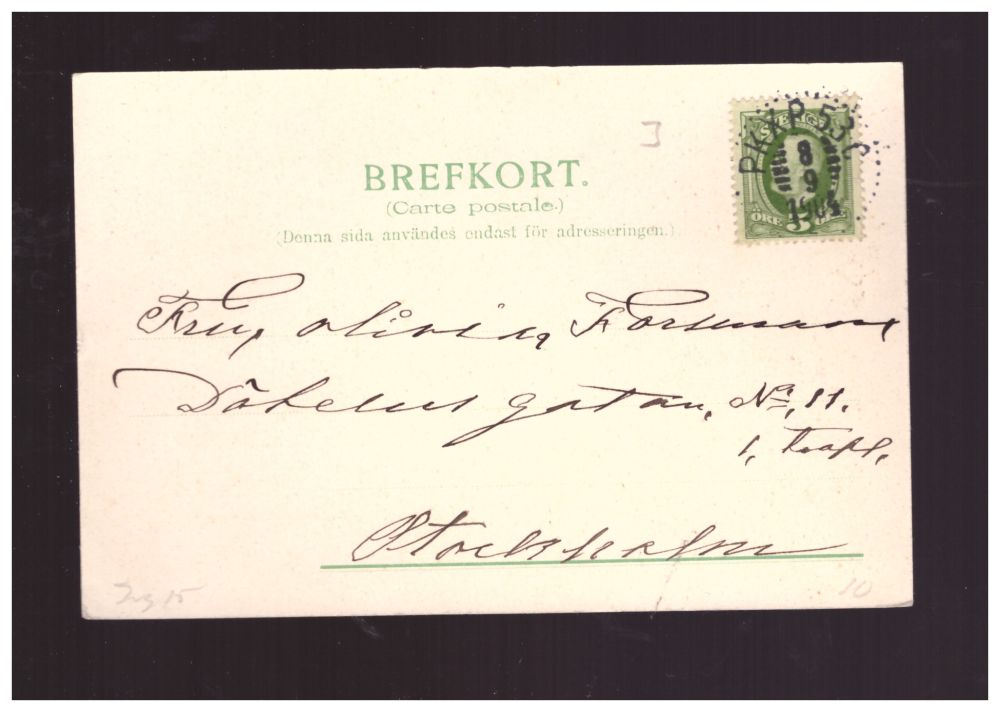 PKXP 53 C
8
9
SVERIGE
ÖRE 5 ÖRE
BREFKORT.
(Carte postale.)
(Denna sida användes endast för adresseringen.)
Fru, Olivia, Forssman
Döbelns gatan, No, 11.
1, Trapp.
Stockholm
10